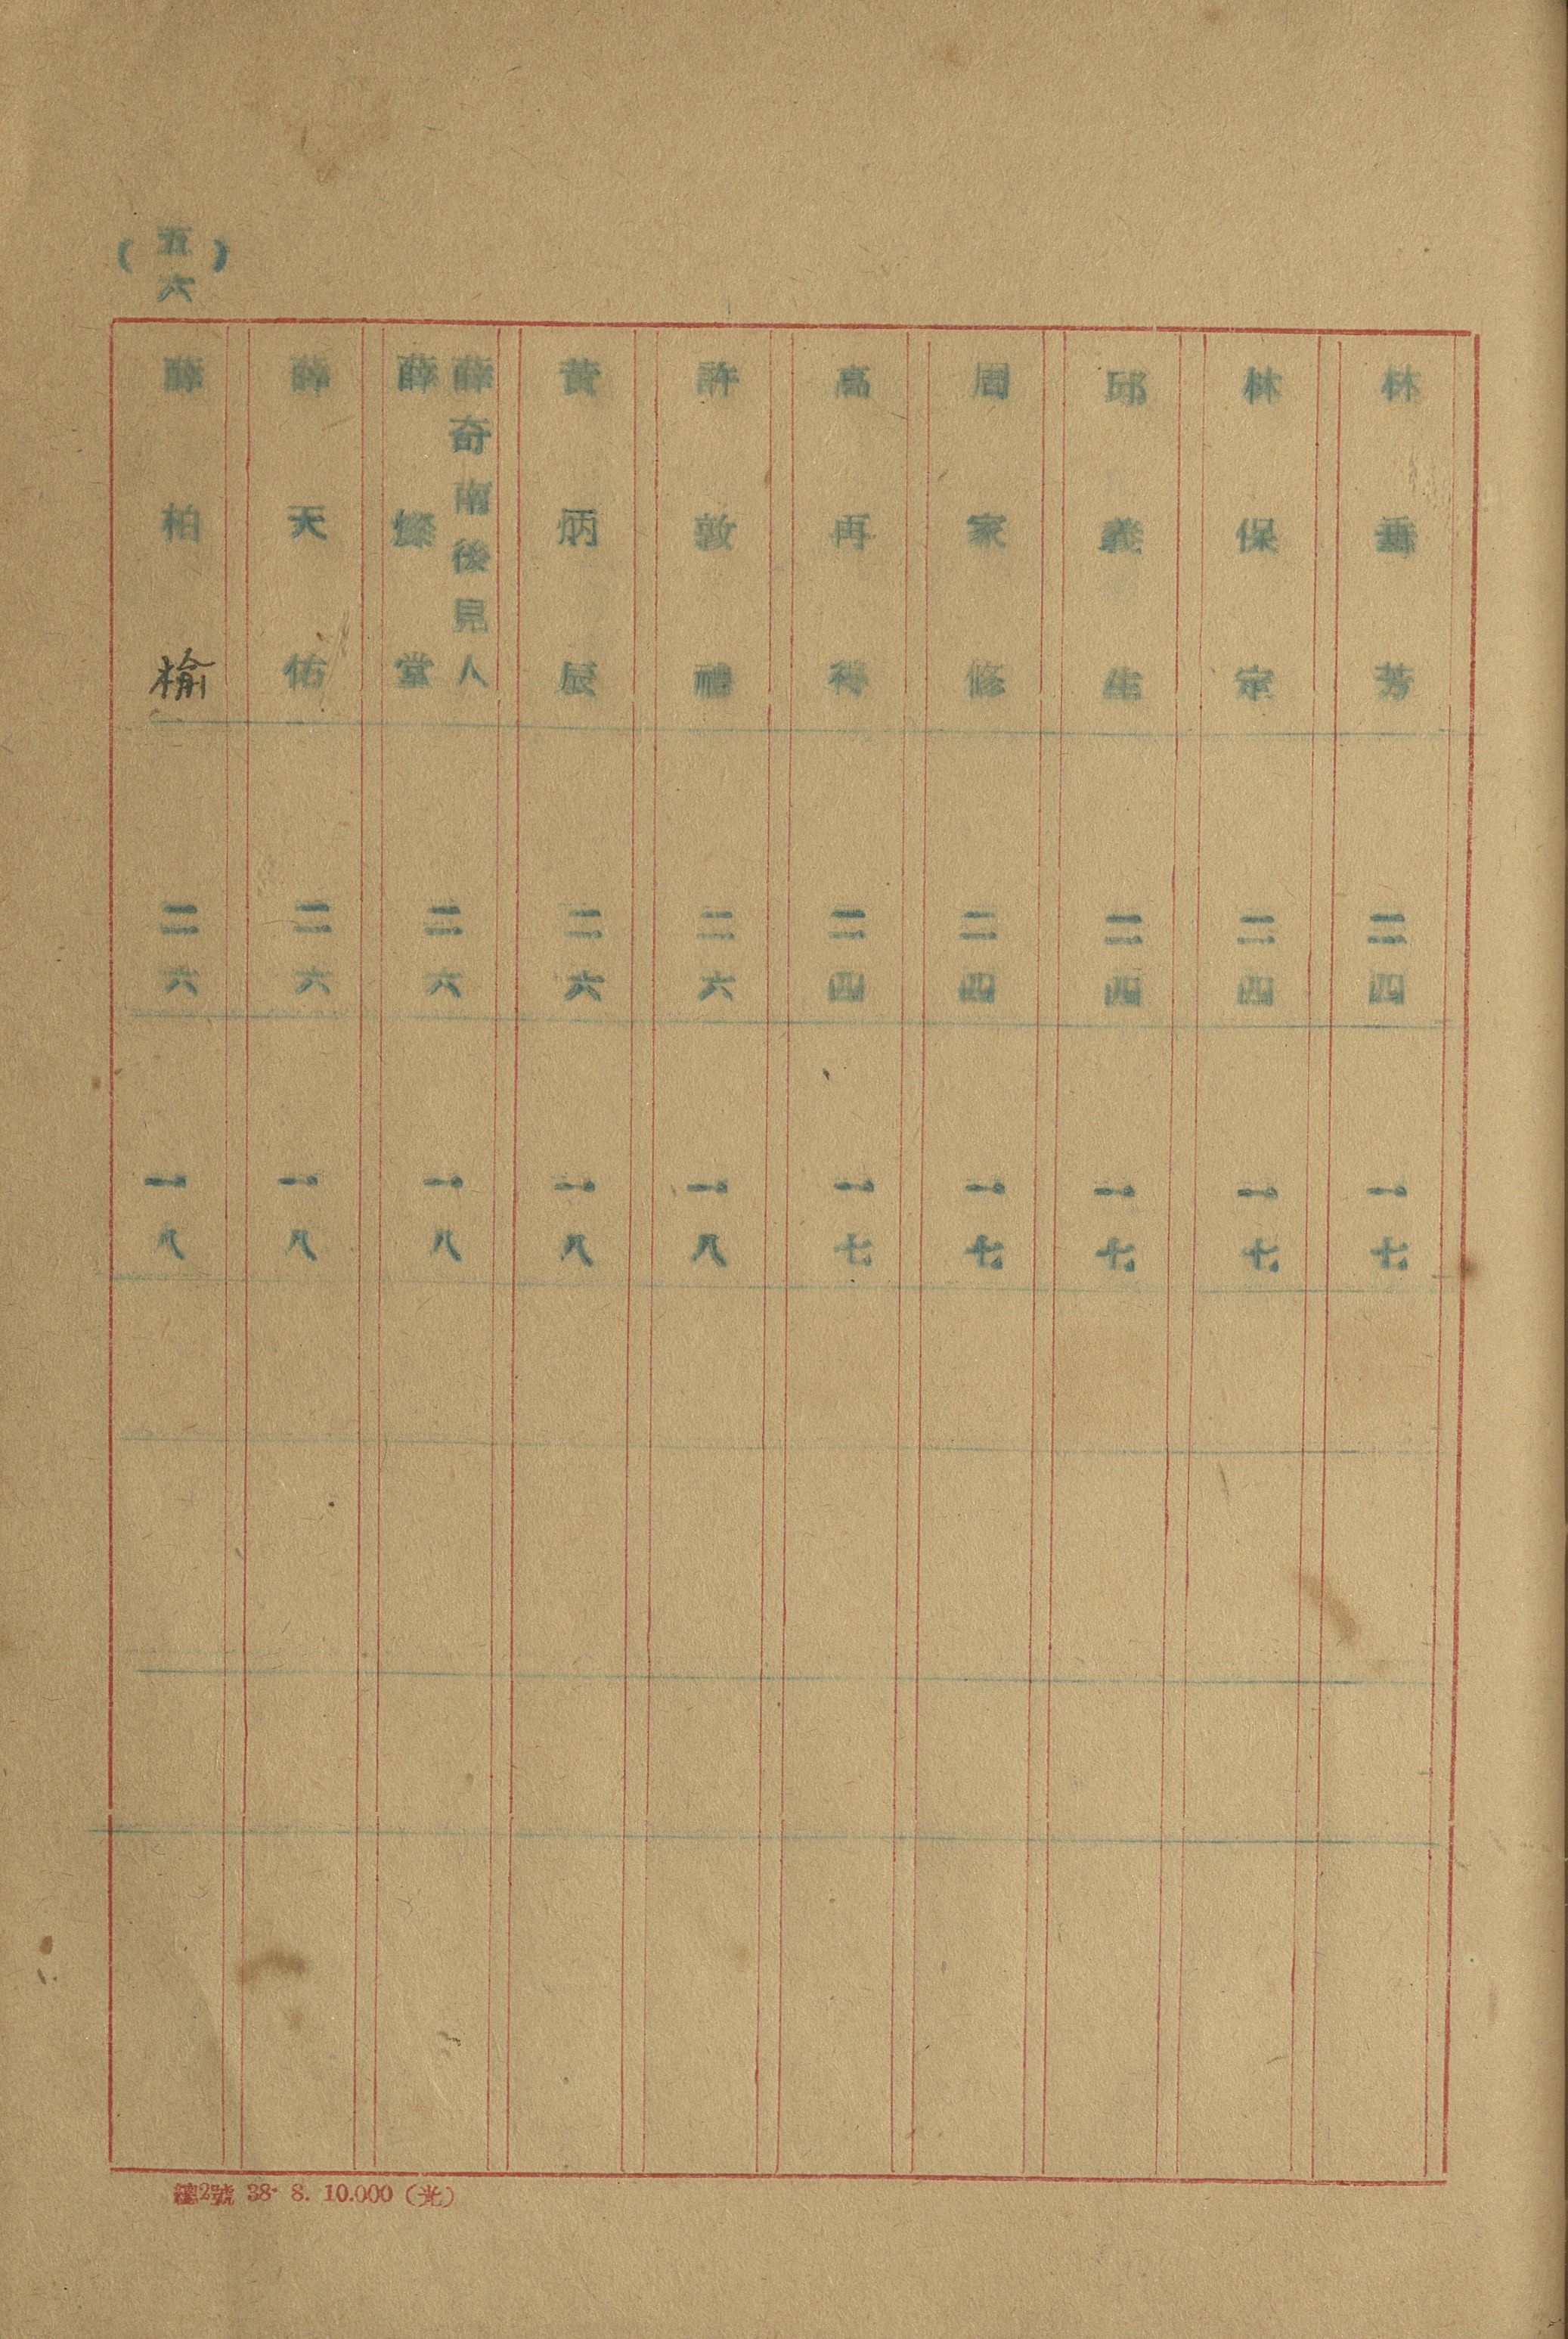 林垂芳 二四 一。七。
林保宗 二四 一。七。
邱義生 二四 一。七。
周家修 二四 一。七。
高再得 二四 一。七。
許敦禮 二六 一。八
黃炳辰 二六 一。八
薛奇南後見人
薛燦堂 二六 一。八
薛天佑 二六 一。八
薛柏榆 二六 一。八
(五六)
總2號 38· 8. 10.000（光）